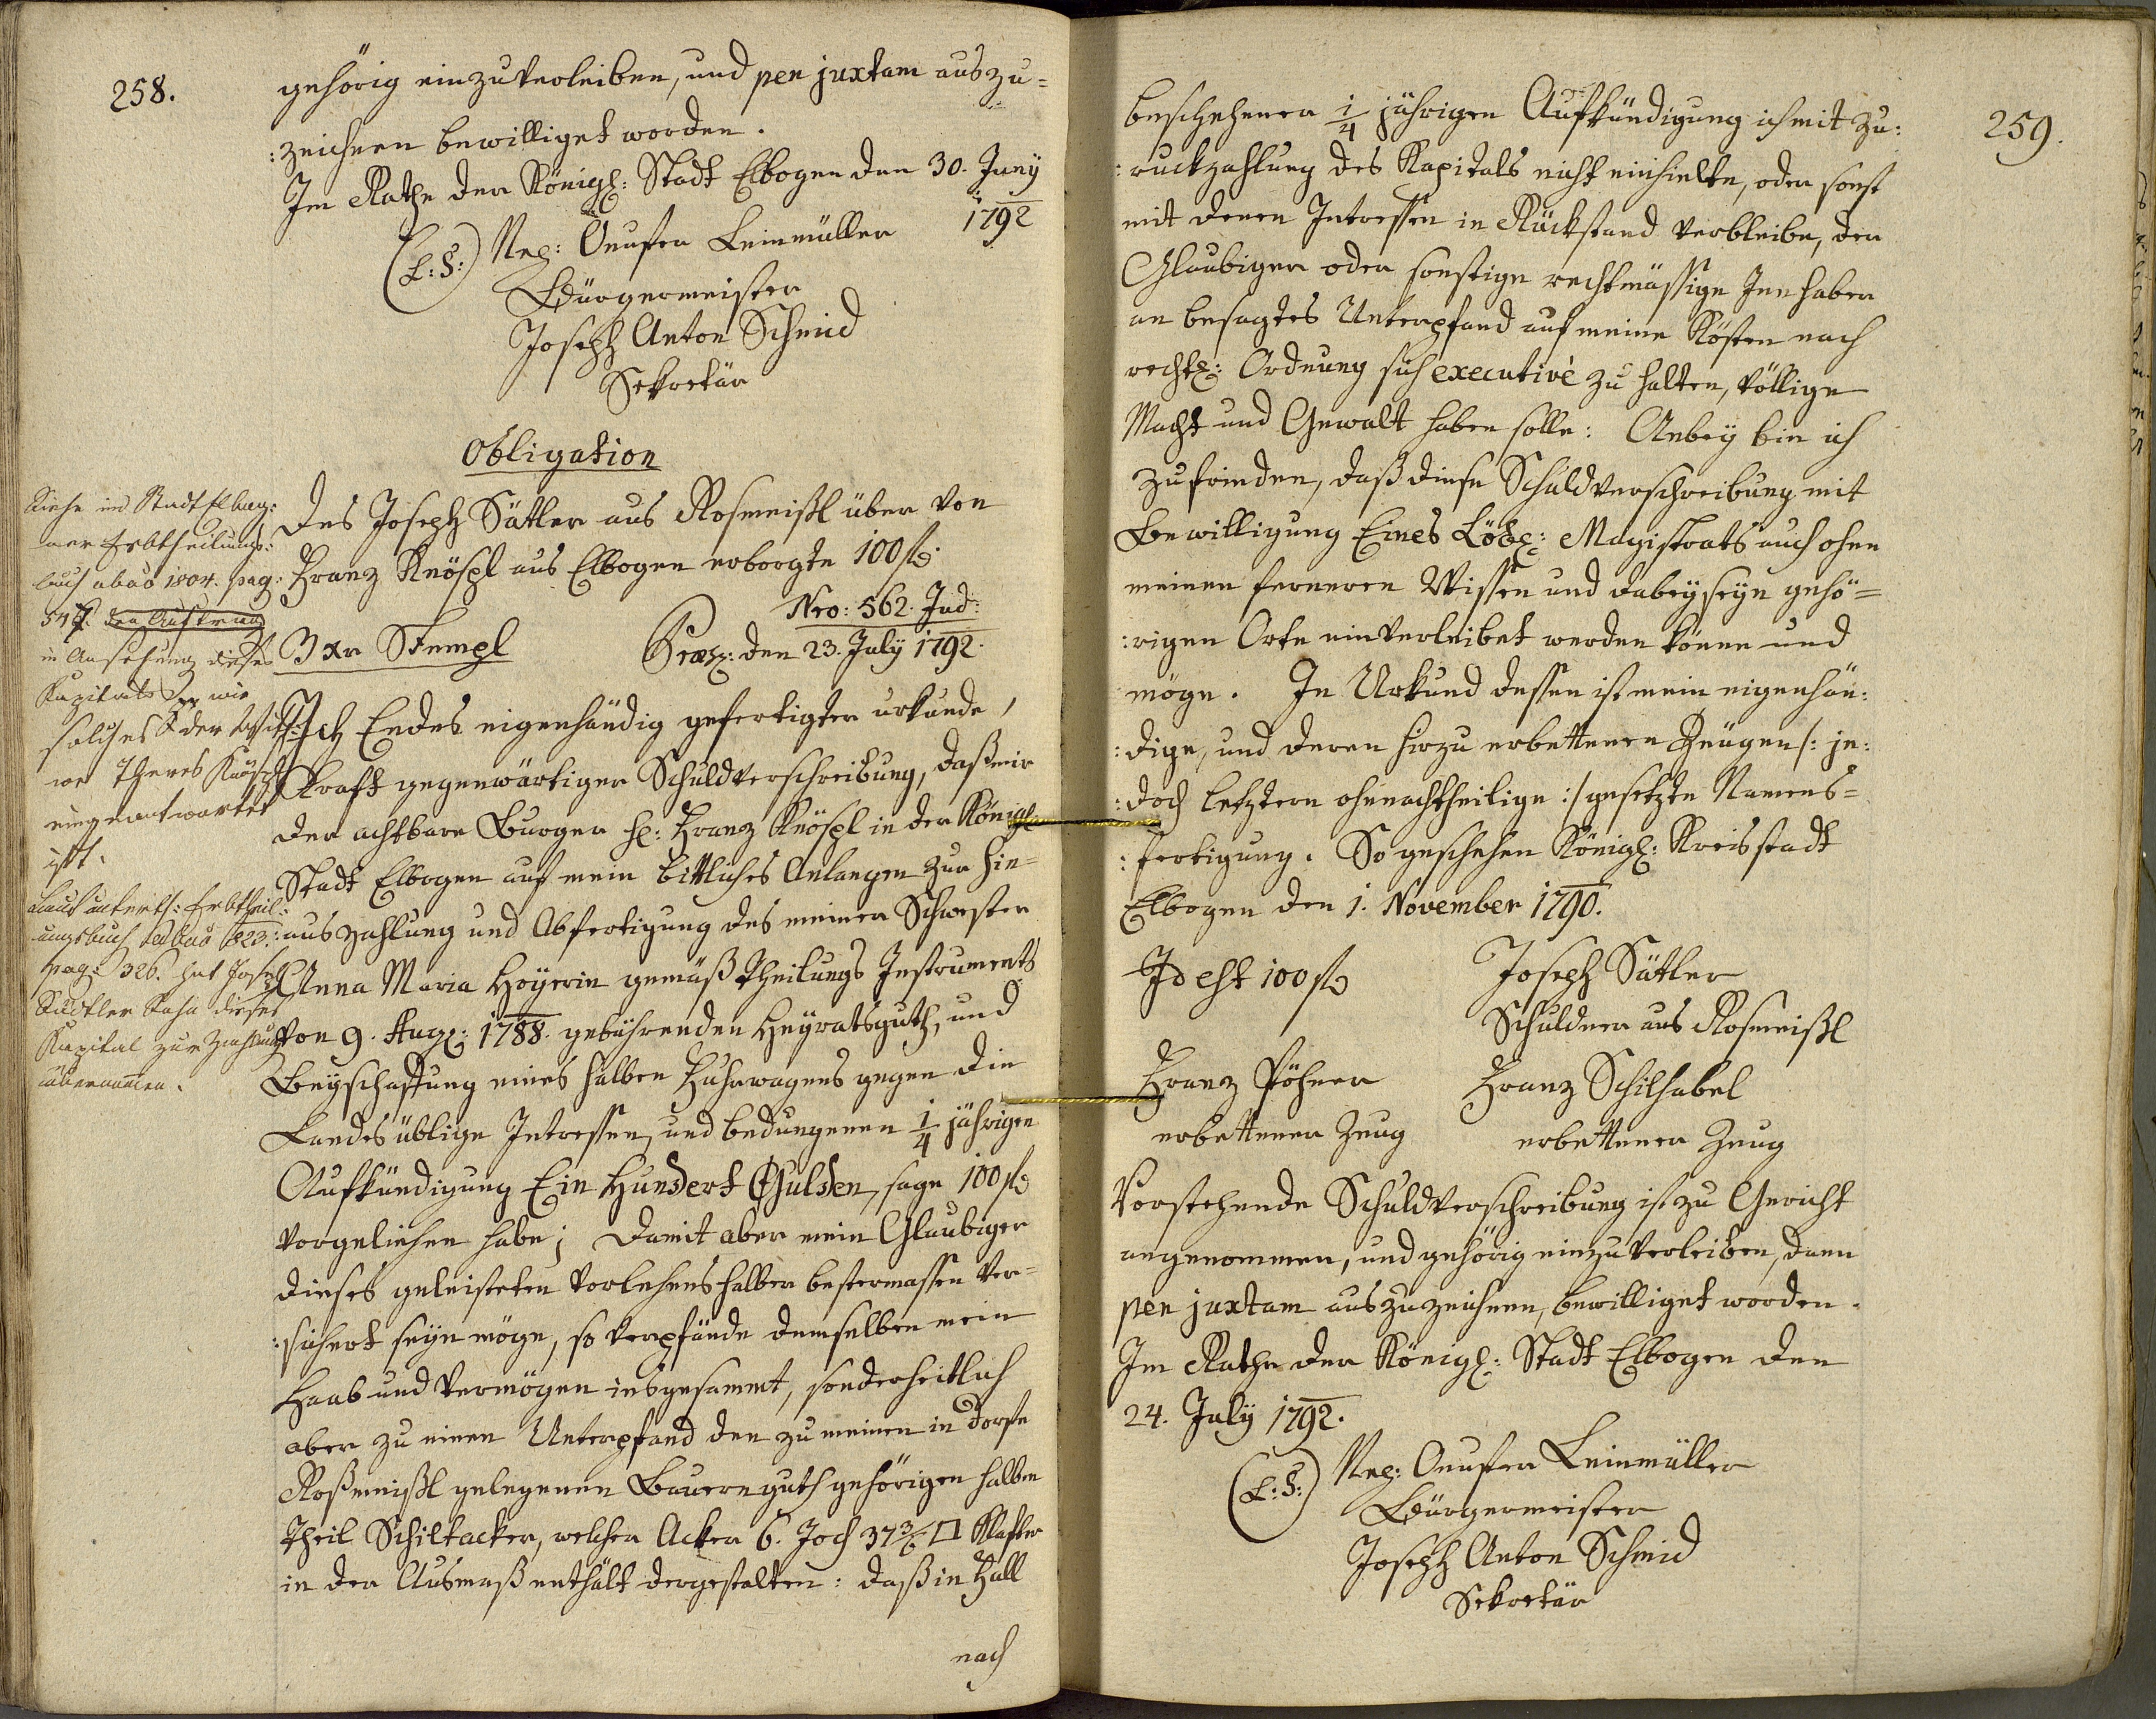 258.
gehörig einzuverleiben, und per juxtam auszu=
:zeichnen bewilliget worden.
Im Rathe der Königl: Stadt Elbogen den 30. Juny
1792
(L:S:) Onufer Leinmüller
Bürgermeister
Joseph Anton Schmid
Sekretär
Obligation
Des Joseph Sätler aus Rosmeißl über von
Franz Knöspl aus Elbogen erborgte 100 f
Nro: 562. Jud:
3 xr Stempl Præs: den 23. July 1792.
Ich Endes eigenhändig gefertigter urkunde,
kraft gegenwärtiger Schuldverschreibung, daß mir
der achtbare Burger H: Franz Knöspl in der Königl
Stadt Elbogen auf mein bittliches Anlangen zur hin=
:auszahlung und Abfertigung des meiner Schwester
Anna Maria Hoyerin gemäß Theilungs Instruments
von 9. Aug: 1788. gebührenden Heyratsguth, und
Beyschaffung eines halben Fuhrwagens gegen die
Landes üblige Intressen, und bedungenen 1/4 jährigen
Aufkündigung Ein Hundert Gulden, sage 100 f
vorgeliehen habe; Damit aber mein Glaubiger
dieses geleisteten Vorlehens halber bestermassen ver=
:sichert seyn möge, so verpfände demselben mein
Haab und Vermögen insgesammt, sonderheitlich
aber zu einen Unterpfand den zu meinen in Dorfe
Roßmeißl gelegenen Bauernguth gehörigen halben
Theil Schiltacker, welcher Acker 6. Joch 37 3/6 □ Klafter
in der Ausmaß enthält dergestalten: daß in Fall
nach
Siehe im Stadt Elbog:
ner Erbtheilungs:
buch abao 1804. pag:
547. den Auftrag
in Ansehung dieses
Kapitals wie
solches der Witt:
we Theres Knöspl
eingeantwortet
ist.
Laut unterth: Erbtheil:
ungsbuch ab ao 823.
pag: 326. hat Joseph
Sadtler Sohn dieses
Kapital zur Zahlung
übernommen.
259.
beschehener 1/4 jährigen Aufkündigung ich mit Zu:
:ruckzahlung des Kapitals nicht einhielte, oder sonst
mit denen Intressen in Rückstand verbleibe, der
Glaubiger oder sonstige rechtmässige Innhaber
an besagtes Unterpfand auf meine Kösten nach
rechtl: Ordnung sich executivè zu halten, völlige
Macht und Gewalt haben solle: Anbey bin ich
zufrieden, daß diese Schuldverschreibung mit
Bewilligung Eines Löbl: Magistrats auch ohne
meinen ferneren Wissen und dabeyseyn gehö=
:rigen Orte einverleibet werden könne und
möge. In Urkund dessen ist mein eigenhän:
:dige, und deren hirzu erbettenen Zeugen /: je:
:doch letztern ohnnachtheilige :/ gesetzte Namens=
:fertigung. So geschehen Königl: Kreisstadt
Elbogen den 1. November 1790.
Id est 100 f Joseph Sätler
Schuldner aus Rosmeißl
Franz Pöhner Franz Schilhabel
erbettener Zeug erbettener Zeug
Vorstehende Schuldverschreibung ist zu Gericht
angenommen, und gehörig einzuverleiben, dann
per juxtam auszuzeichnen, bewilliget worden.
Im Rathe der Königl: Stadt Elbogen den
24. July 1792.
(L:S:) Onufer Leinmüller
Bürgermeister
Joseph Anton Schmid
Sekretär